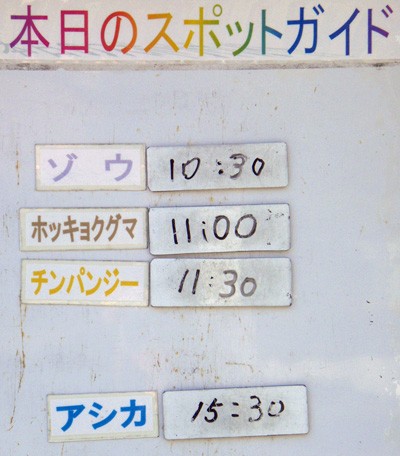 本日のスポットガイド
ゾウ 10:30
ホッキョクグマ 11:00
チンパンジー 11:30
アシカ 15:30